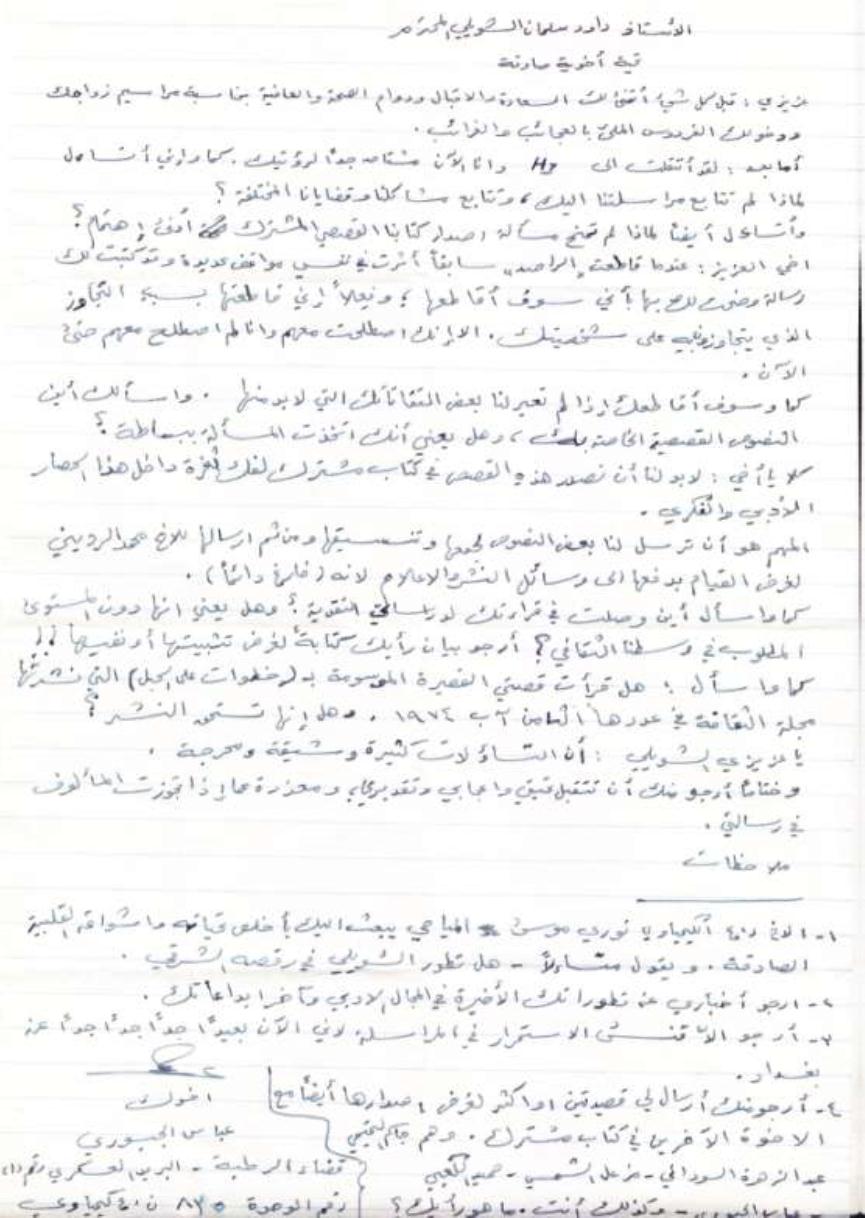 الأستاذ داود سلمان الشويلي المحترم
تحية أخوية صادقة
عزيزي : قبل كل شيء أتمنى لك السعادة والاقبال ودوام الصحة والعافية بمناسبة مراسيم زواجك
ودخولك الفردوس المليء بالعجائب والغرائب .
أما بعد : لقد أنتقلت الى H3 وانا الآن مشتاق جداً لرؤيتك . كما وإني أتساءل
لماذا لم تتابع مراسلتنا اليك ، وتتابع مشاكلنا وقضايانا المختلفة ؟
وأتساءل أيضاً لماذا لم تمنح مسألة اصدار كتابنا القصصي المشترك أدنى إهتمام ؟
اخي العزيز : عندما قاطعت "الراصد" سابقاً أثرت في نفسي مواقف عديدة وقد كتبت لك
رسالة وضحت لك بها بأني سوف أقاطعها ؛ وفعلاً إني قاطعتها بسبب التجاوز
الذي يتجاوزونه على شخصيتك . الا إنك اصطلحت معهم وانا لم اصطلح معهم حتى
الآن .
كما وسوف أقاطعك إذا لم تعير لنا بعض التفاتاتك التي لابد منها . واسألك أين
النصوص القصصية الخاصة بك ، وهل يعني أنك اتخذت المسألة ببساطة ؟
كلا يا أخي : لابد لنا أن نصدر هذه القصص في كتاب مشترك لفك ثغرة داخل هذا الحصار
الأدبي والفكري .
المهم هو أن ترسل لنا بعض النصوص لجمعها وتنسيقها ومن ثم ارسالها للاخ محمد الرديني
لغرض القيام بدفعها الى وسائل النشر والاعلام لانه ( دائماً ) .
كما واسأل أين وصلت في قراءتك لدراساتي النقدية ؟ وهل يعني انها دون المستوى
المطلوب في وسطنا الثقافي ؟ أرجو بيان رأيك كتابة لغرض تثبيتها أو نفيها !!
كما واسأل : هل قرأت قصتي القصيرة الموسومة بـ (خطوات على الجبل) التي نشرتها
مجلة الثقافة في عددها الثامن آب ١٩٧٤ . وهل إنها تستحق النشر ؟
يا عزيزي الشويلي : أن التساؤلات كثيرة وشيقة ومحرجة .
وختاماً أرجو منك أن تتقبل تحيتي واعجابي وتقديري ، ومعذرة عما إذا تجوزت المألوف
في رسالتي .
ملاحظات
١- الاخ ن.ع الكيمياوي نوري موسى المياحي يبعث اليك بأخلص تحياته واشواقه القلبية
الصادقة . ويقول متسائلاً - هل تطور الشويلي في رقصه الشرقي .
٢- ارجو أخباري عن تطوراتك الأخيرة في المجال الادبي وآخر ابداعاتك .
٣- أرجو الا تنسى الاستمرار في المراسلة لاني الآن بعيداً جداً جداً جداً عن
بغداد .
٤- أرجو منك أرسال لي قصيدتين او اكثر لغرض اصدارها أيضاً مع
الاخوة الآخرين في كتاب مشترك . وهم
عبد الزهرة السوداني - - حميد الكعبي
عباس الجبوري - وكذلك أنت . ما هو رأيك ؟
اخوك
عباس الجبوري
قضاء الرطبة - البريد العسكري رقم (١)
رقم الوحدة ٨٣٥ كيمياوي